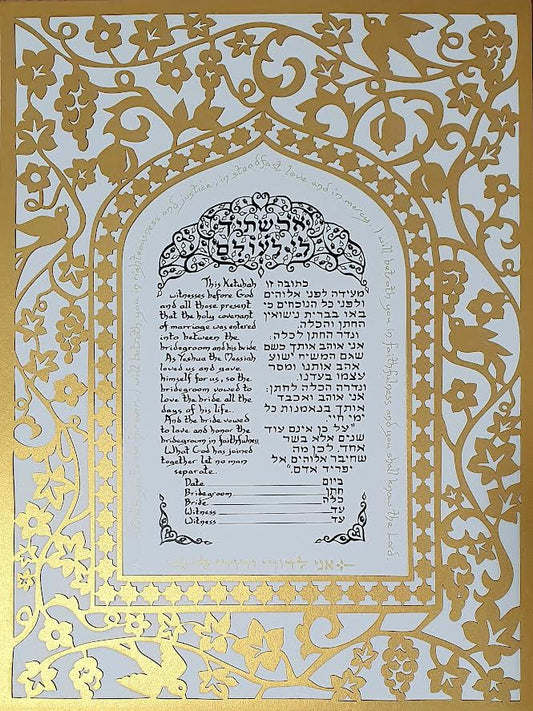 I will betroth you in righteousness and justice, in steadfast love and in mercy. I will betroth you in faithfulness and you shall know the Lord.
וארשתיך
לי לעולם
This Ketubah
witnesses before God
and all those present
that the holy covenant
of marriage was entered
into between the
bridegroom and his bride.
As Yeshua the Messiah
loved us and gave
himself for us, so the
bridegroom vowed to
love the bride all the
days of his life.
And the bride vowed
to love and honor the
bridegroom in faithfulness.
What God has joined
together let no man
separate.
כתובה זו
מעידה לפני אלוהים
ולפני כל הנוכחים כי
באו בברית נשואין
החתן והכלה.
ונדר החתן לכלה:
אני אוהב אותך כשם
שאם המשיח ישוע
אהב אותנו ומסר
עצמו בעדנו.
ונדרה הכלה לחתן:
אני אוהב ואכבד
אותך בנאמנות כל
ימי חיי.
"על כן אינם עוד
שנים אלא בשר
אחד. לכן מה
שחיבר אלוהים אל
יפריד אדם."
Date ביום
Bridegroom חתן
Bride כלה
Witness עד
Witness עד
אני לדודי ודודי לי